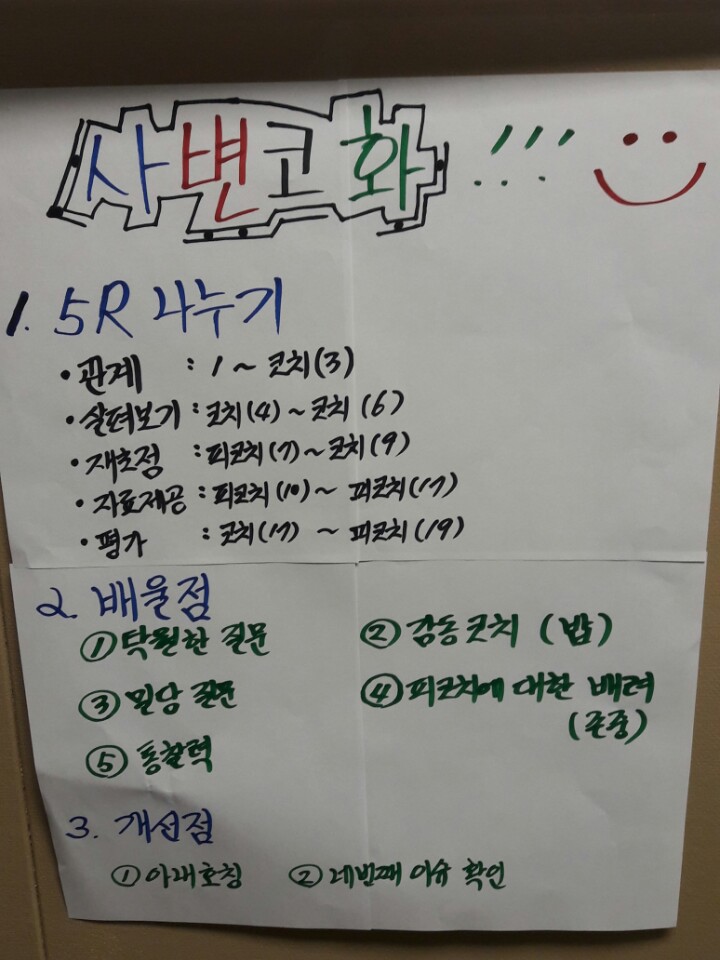 사변코화 !!!
1. 5R 나누기
• 관계 : 1 ~ 코치(3)
• 살펴보기 : 코치(4) ~ 코치(6)
• 재초점 : 피코치(7) ~ 코치(9)
• 자료제공 : 피코치(10) ~ 피코치(17)
• 평가 : 코치(17) ~ 피코치(19)
2. 배울점
① 탁월한 질문 ② 감동코치 (밥)
③ 질문 ④ 피코치에 대한 배려
(존중)
⑤ 통찰력
3. 개선점
① 아내호칭 ② 네번째 이슈 확인